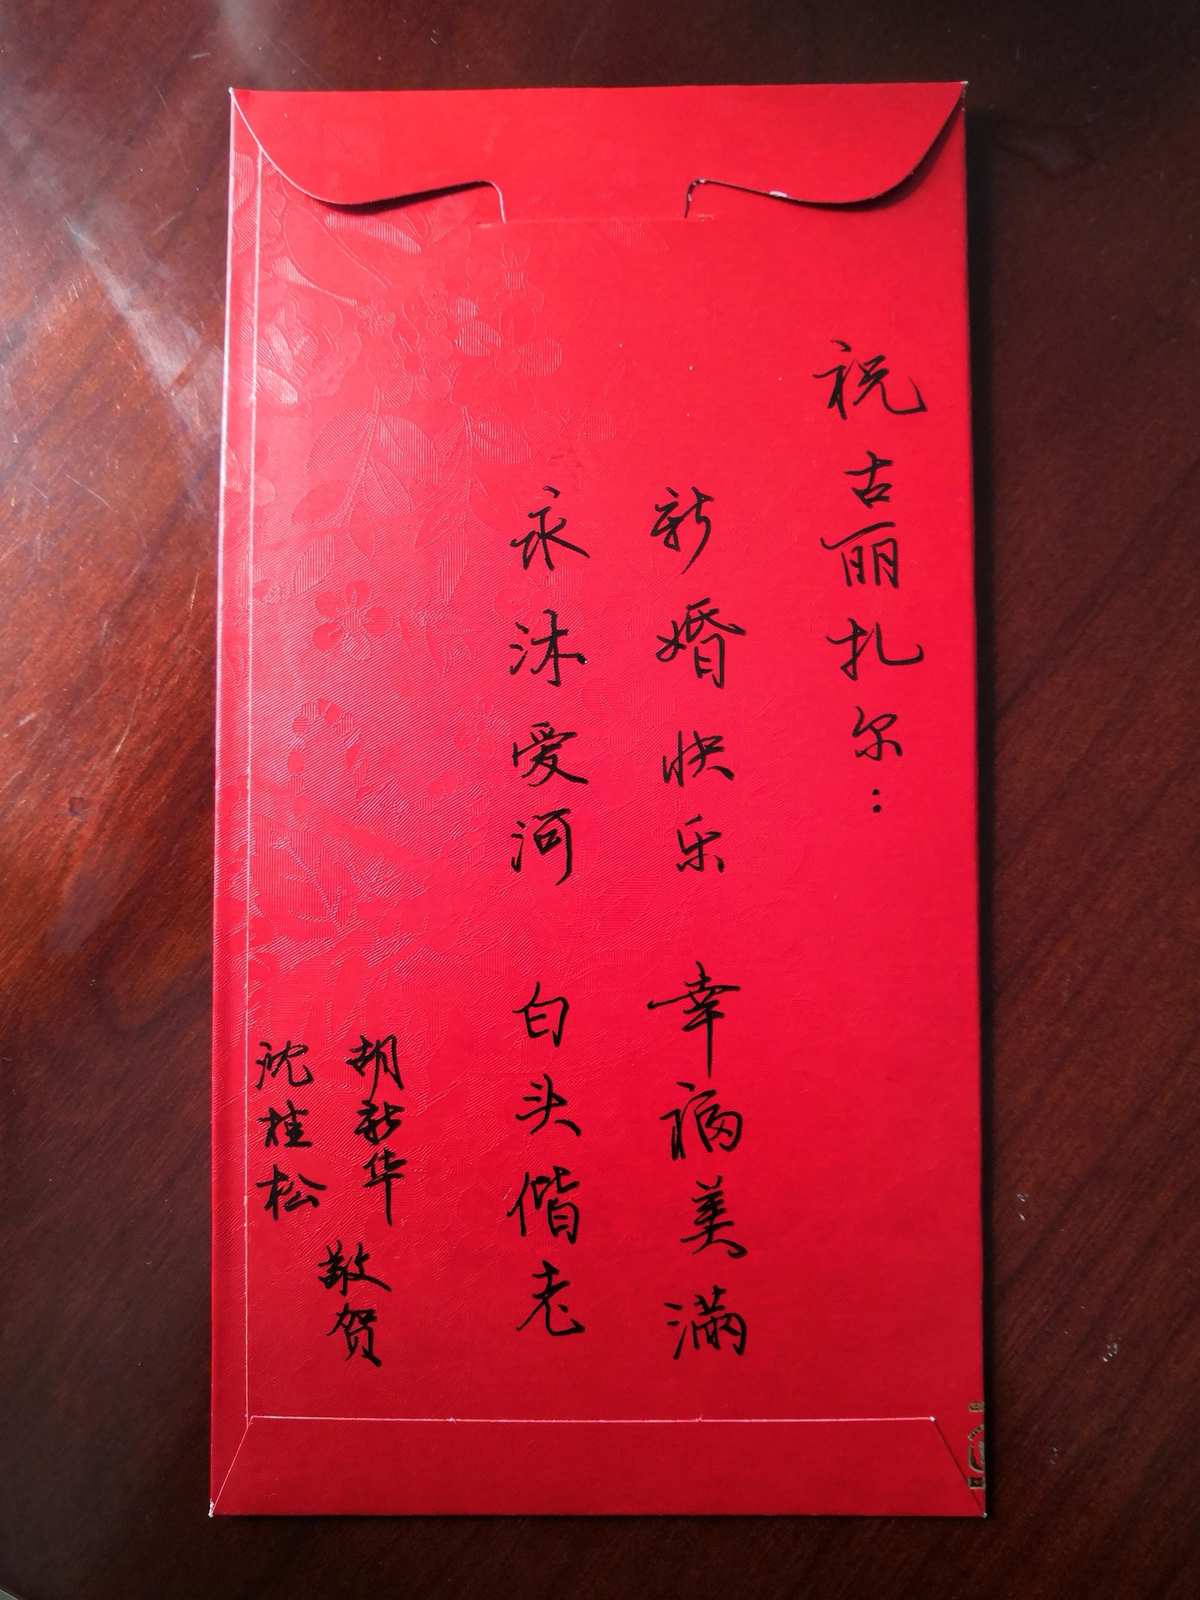 祝古丽扎尔：
新婚快乐 幸福美满
永沐爱河 白头偕老
胡新华
沈桂松
敬贺